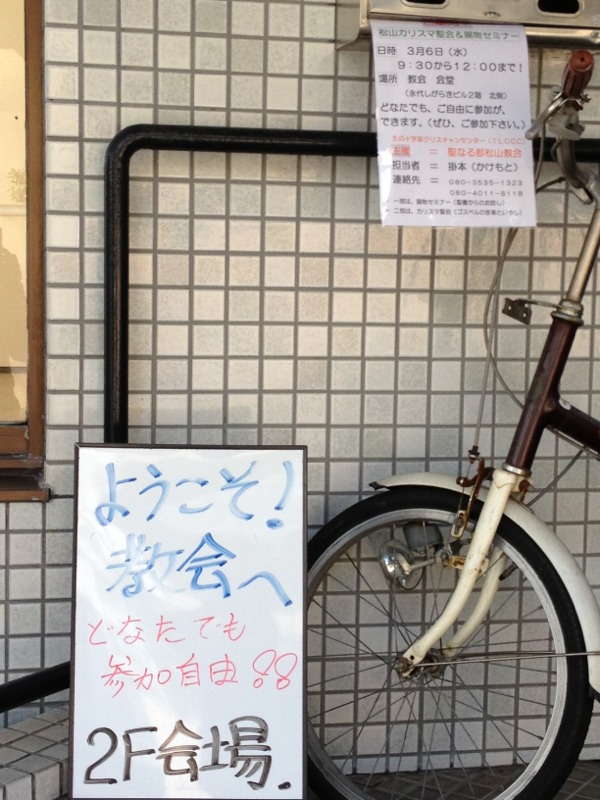 松山カリスマ聖会＆賜物セミナー
日時 3月6日（水）
9：30から12：00まで！
場所 教会 会堂
（永代しがらきビル2階 北側）
どなたでも、ご自由に参加が、
できます。（ぜひ、ご参加下さい。）
主の十字架クリスチャンセンター（TLCCC）
主催 ＝ 聖なる都松山教会
担当者 ＝ 掛本（かけもと）
連絡先 ＝ 080-3535-1323
080-4011-8118
* 一部は、賜物セミナー（聖書からのお話し）
* 二部は、カリスマ聖会（ゴスペルの音楽といやし）
ようこそ！
教会へ
どなたでも
参加自由!!
2F会場.